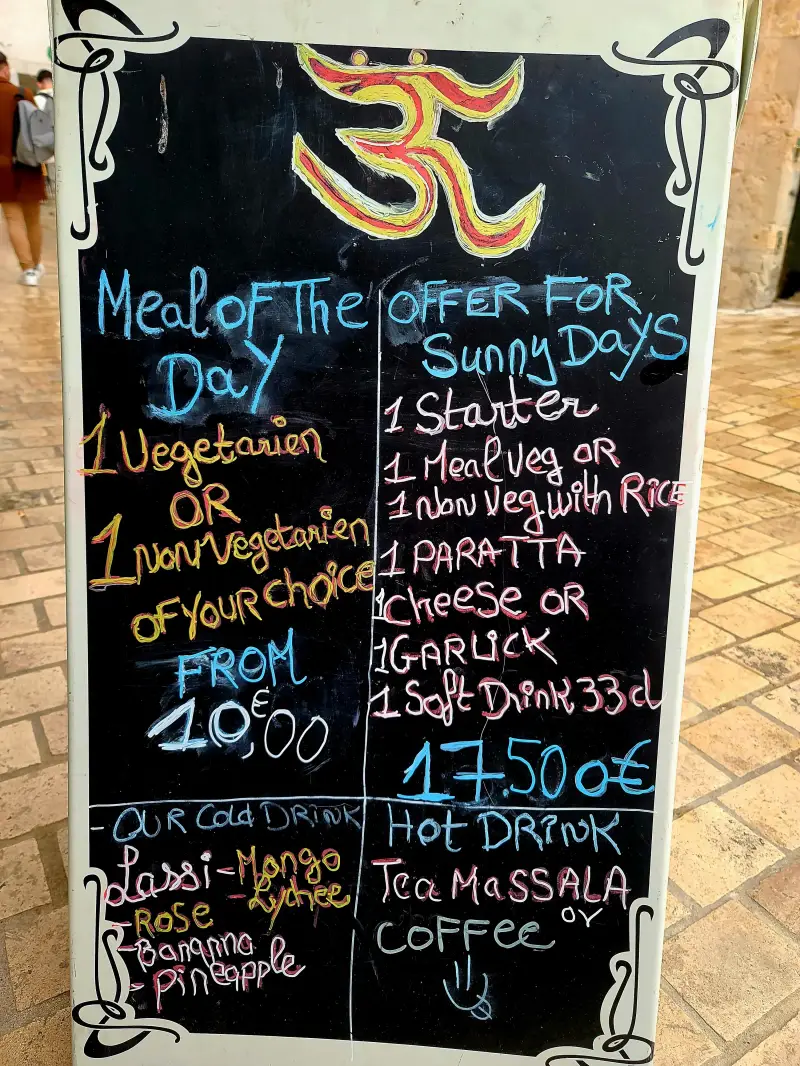 Meal OF The
Day
1 Vegetarien
OR
1 Non Vegetarien
OF YOUR Choice
FROM
10,€00
OFFER FOR
Sunny Days
1 Starter
1 Meal veg OR
1 Non Veg with RICE
1 PARATTA
1 Cheese OR
1 GARLICK
1 Soft Drink 33 cl
17.50 0€
- OUR Cold DRINK
Lassi - Mango
- Lychee
- ROSE
- Bananna
- pineapple
Hot DRINK
Tea MaSSALA
or
COFFee